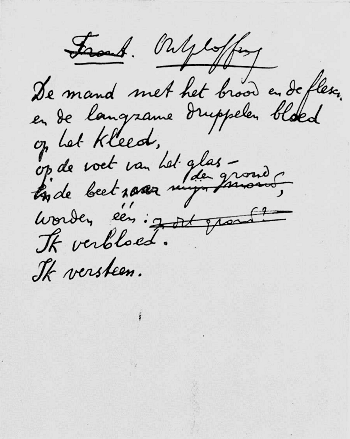 Front. Ontploffing
De mand met het brood en de flesch,
en de langzame druppelen bloed
op het kleed,
op de voet van het glas –
den grond
In de beet naar mijn mond,
worden één:
Ik verbloed.
Ik versteen.